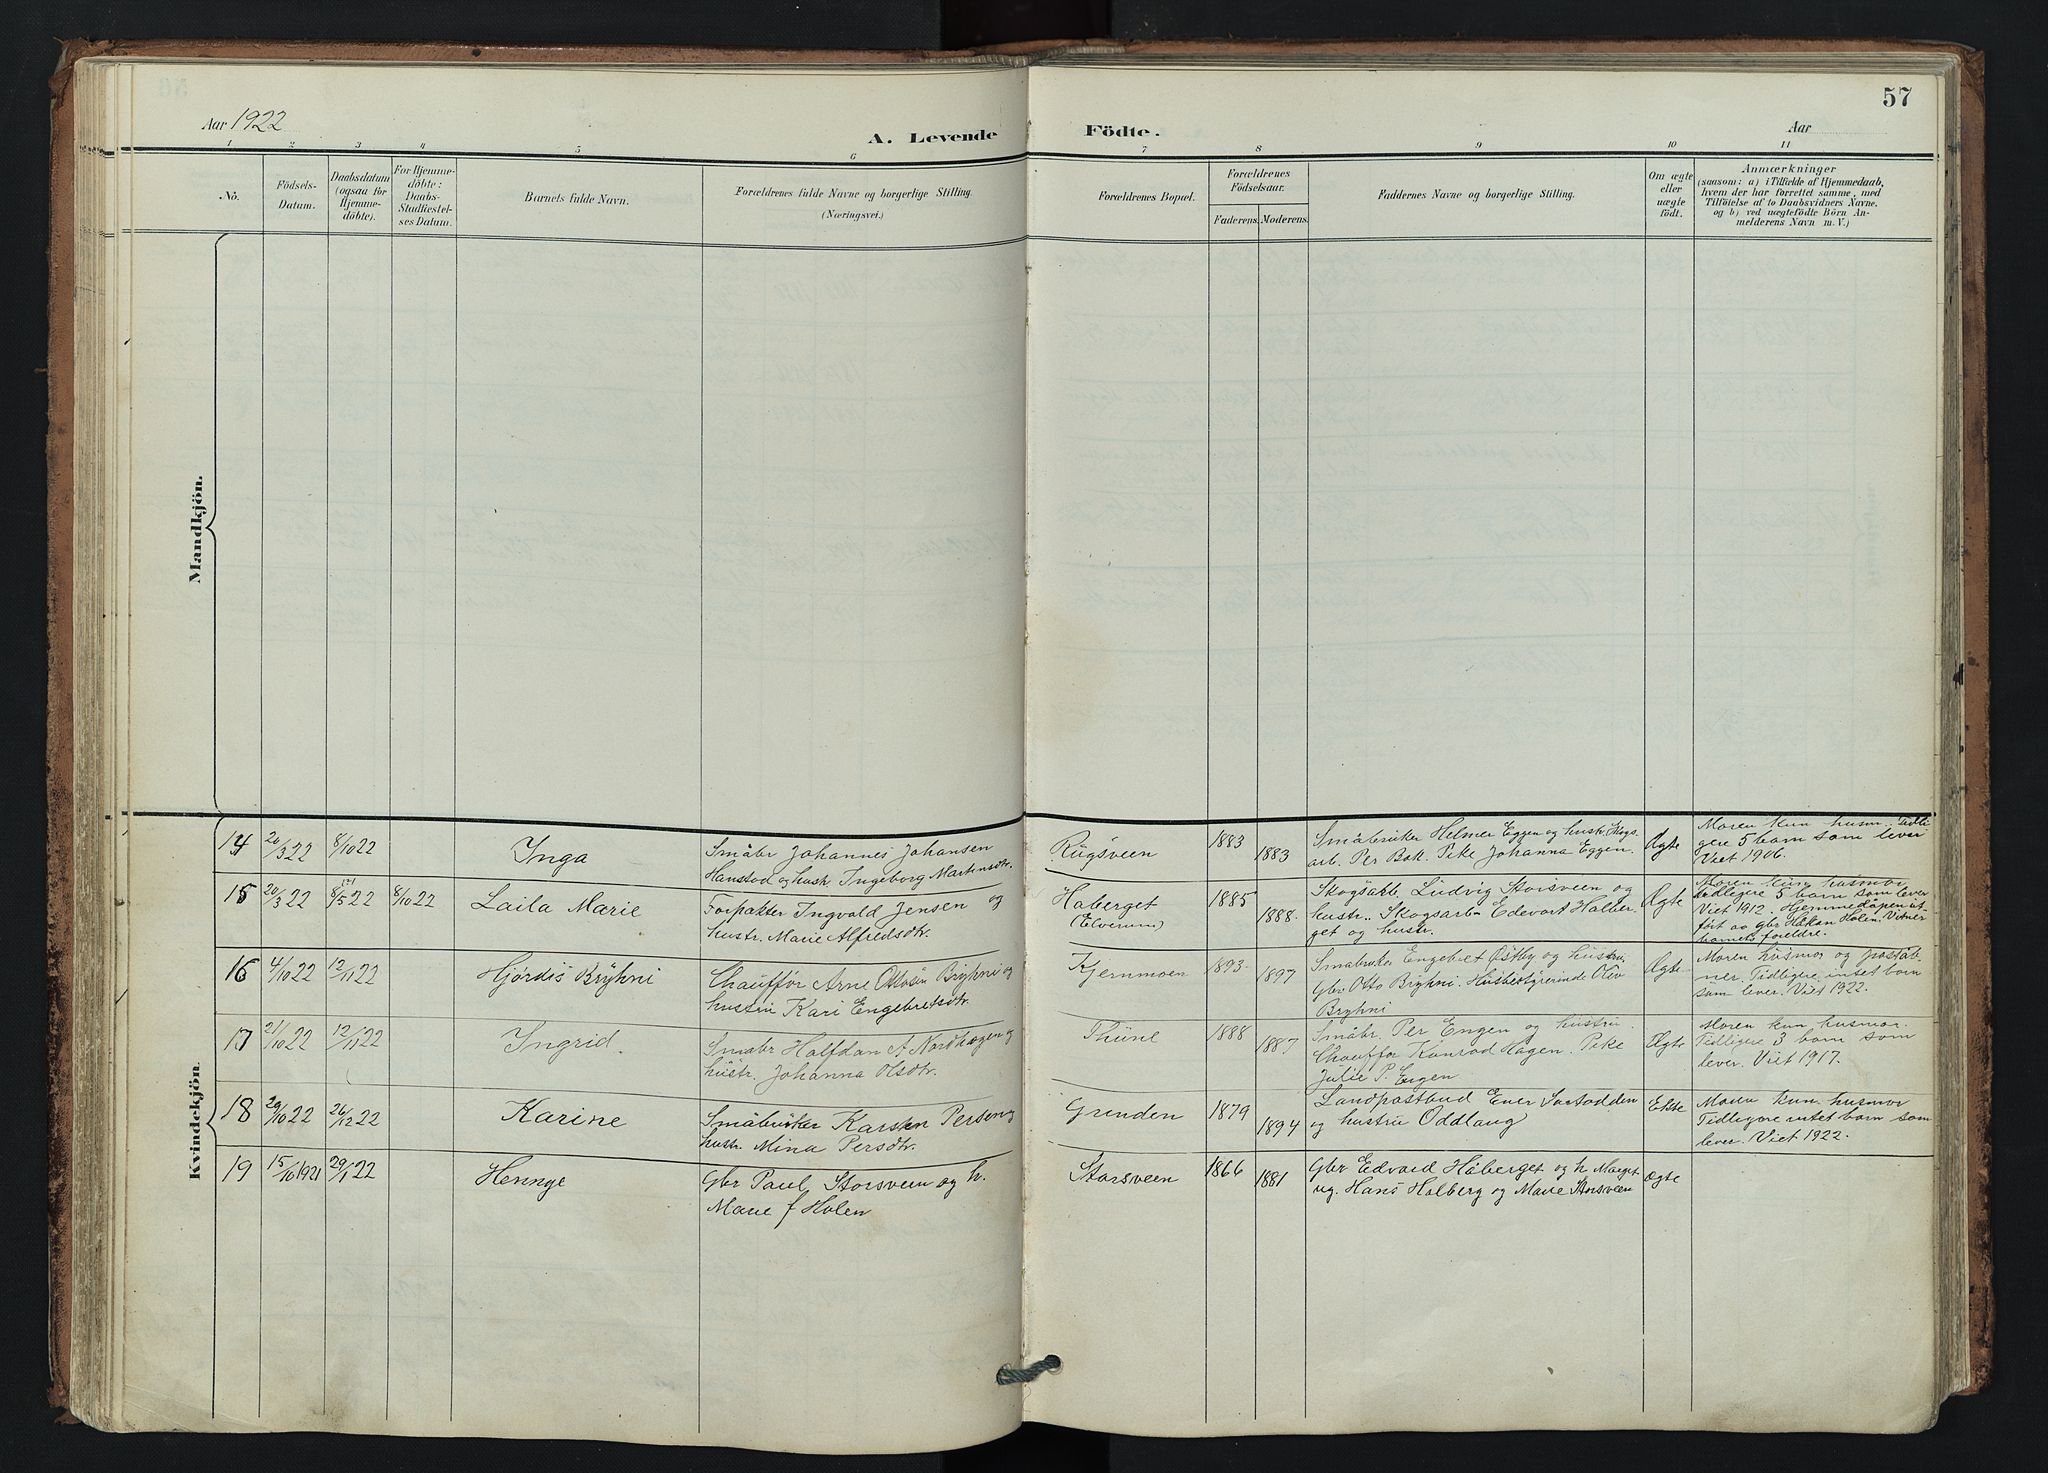 57
Aar 1922
A. Levende Födte.
Aar
1 2 3 4 5 6 7 8 9 10 11
No.
Födsels-
Datum.
Daabsdatum
(ogsaa for
Hjemme-
döbte).
For Hjemme-
döbte:
Daabs-
Stadfæstel-
ses Datum.
Barnets fulde Navn.
Forældrenes fulde Navne og borgerlige Stilling.
(Næringsvei.)
Forældrenes Bopæl.
Forældrenes
Födselsaar.
Faderens. Moderens.
Faddernes Navne og borgerlige Stilling.
Om ægte
eller
uægte
födt.
Anmærkninger
(saasom: a) i Tilfælde af Hjemmedaab,
hvem der har forrettet samme, med
Tilföielse af to Daabsvidners Navne,
og b) ved uægtefödte Börn An-
melderens Navn m. V.)
Mandkjön.
Kvindekjön.
14 20/3 22 8/10 22 Inga
Småbr Johannes Johansen
Hanstad og hustr. Ingeborg Martinsdtr.
Rugsveen 1883 1883
Småbruker Helmer Eggen og hustr. Skogs.
arb. Per Bak. Pike Johanna Eggen.
Ægte
Moren kun husm. Tidli
gere 5 barn som lever
Viet 1906.
15 20/3 22 8/5 22 8/10 22 Laila Marie
Forpakter Ingvald Jensen og
hustr. Marie Alfredsdtr.
Haberget
(Elverum)
1885 1888.
Skogsarb. Ludvig Storsveen og
hustr. Skogsarb. Edevart Halber-
get og hustr.
Ægte
Moren kun husmor
tidligere 5 barn som lever
Viet 1912. Hjemmedåpen ut-
ført av gbr Håken Holen. Vitner
barnets foreldre.
16 4/10 22 12/11 22 Hjördis Bryhni
Chauffør Arne Ottosen Bryhni og
hustru Kari Engebretsdtr.
Kjernmoen 1893 1897
Småbruker Engebret Østby og hustru,
Gbr Otto Bryhni. Husbestyrerinde Oliv
Bryhni
Ægte
Moren husmor og postab-
ner. Tidligere intet barn
som lever. Viet 1922.
17 21/10 22 12/11 22 Ingrid.
Småbr Halfdan A Nordhagen og
hustr. Johanna Olsdtr.
Thune 1888 1887
Småbr. Per Engen og hustru.
Chauffør Konrad Hagen. Pike
Julie P. Engen
Ægte
Moren kun husmor.
Tidligere 3 barn som
lever. Viet 1917.
18 29/10 22 26/12 22 Karine
Småbruker Karsten Persen og
hustr. Mina Persdtr.
Grinden 1879 1894
Landpostbud Ener Sorstadden
og hustru Oddlaug
Ekte
Moren kun husmor
Tidligere intet barn som
lever. Viet 1922.
19 15/10 1921 29/1 22 Hennge
Gbr Paul Storsveen og h.
Marie f Holen
Storsveen 1866 1881
Gbr Edvard Håberget og h Marget
ug. Hans Halberg og Marie Storsveen
ægte